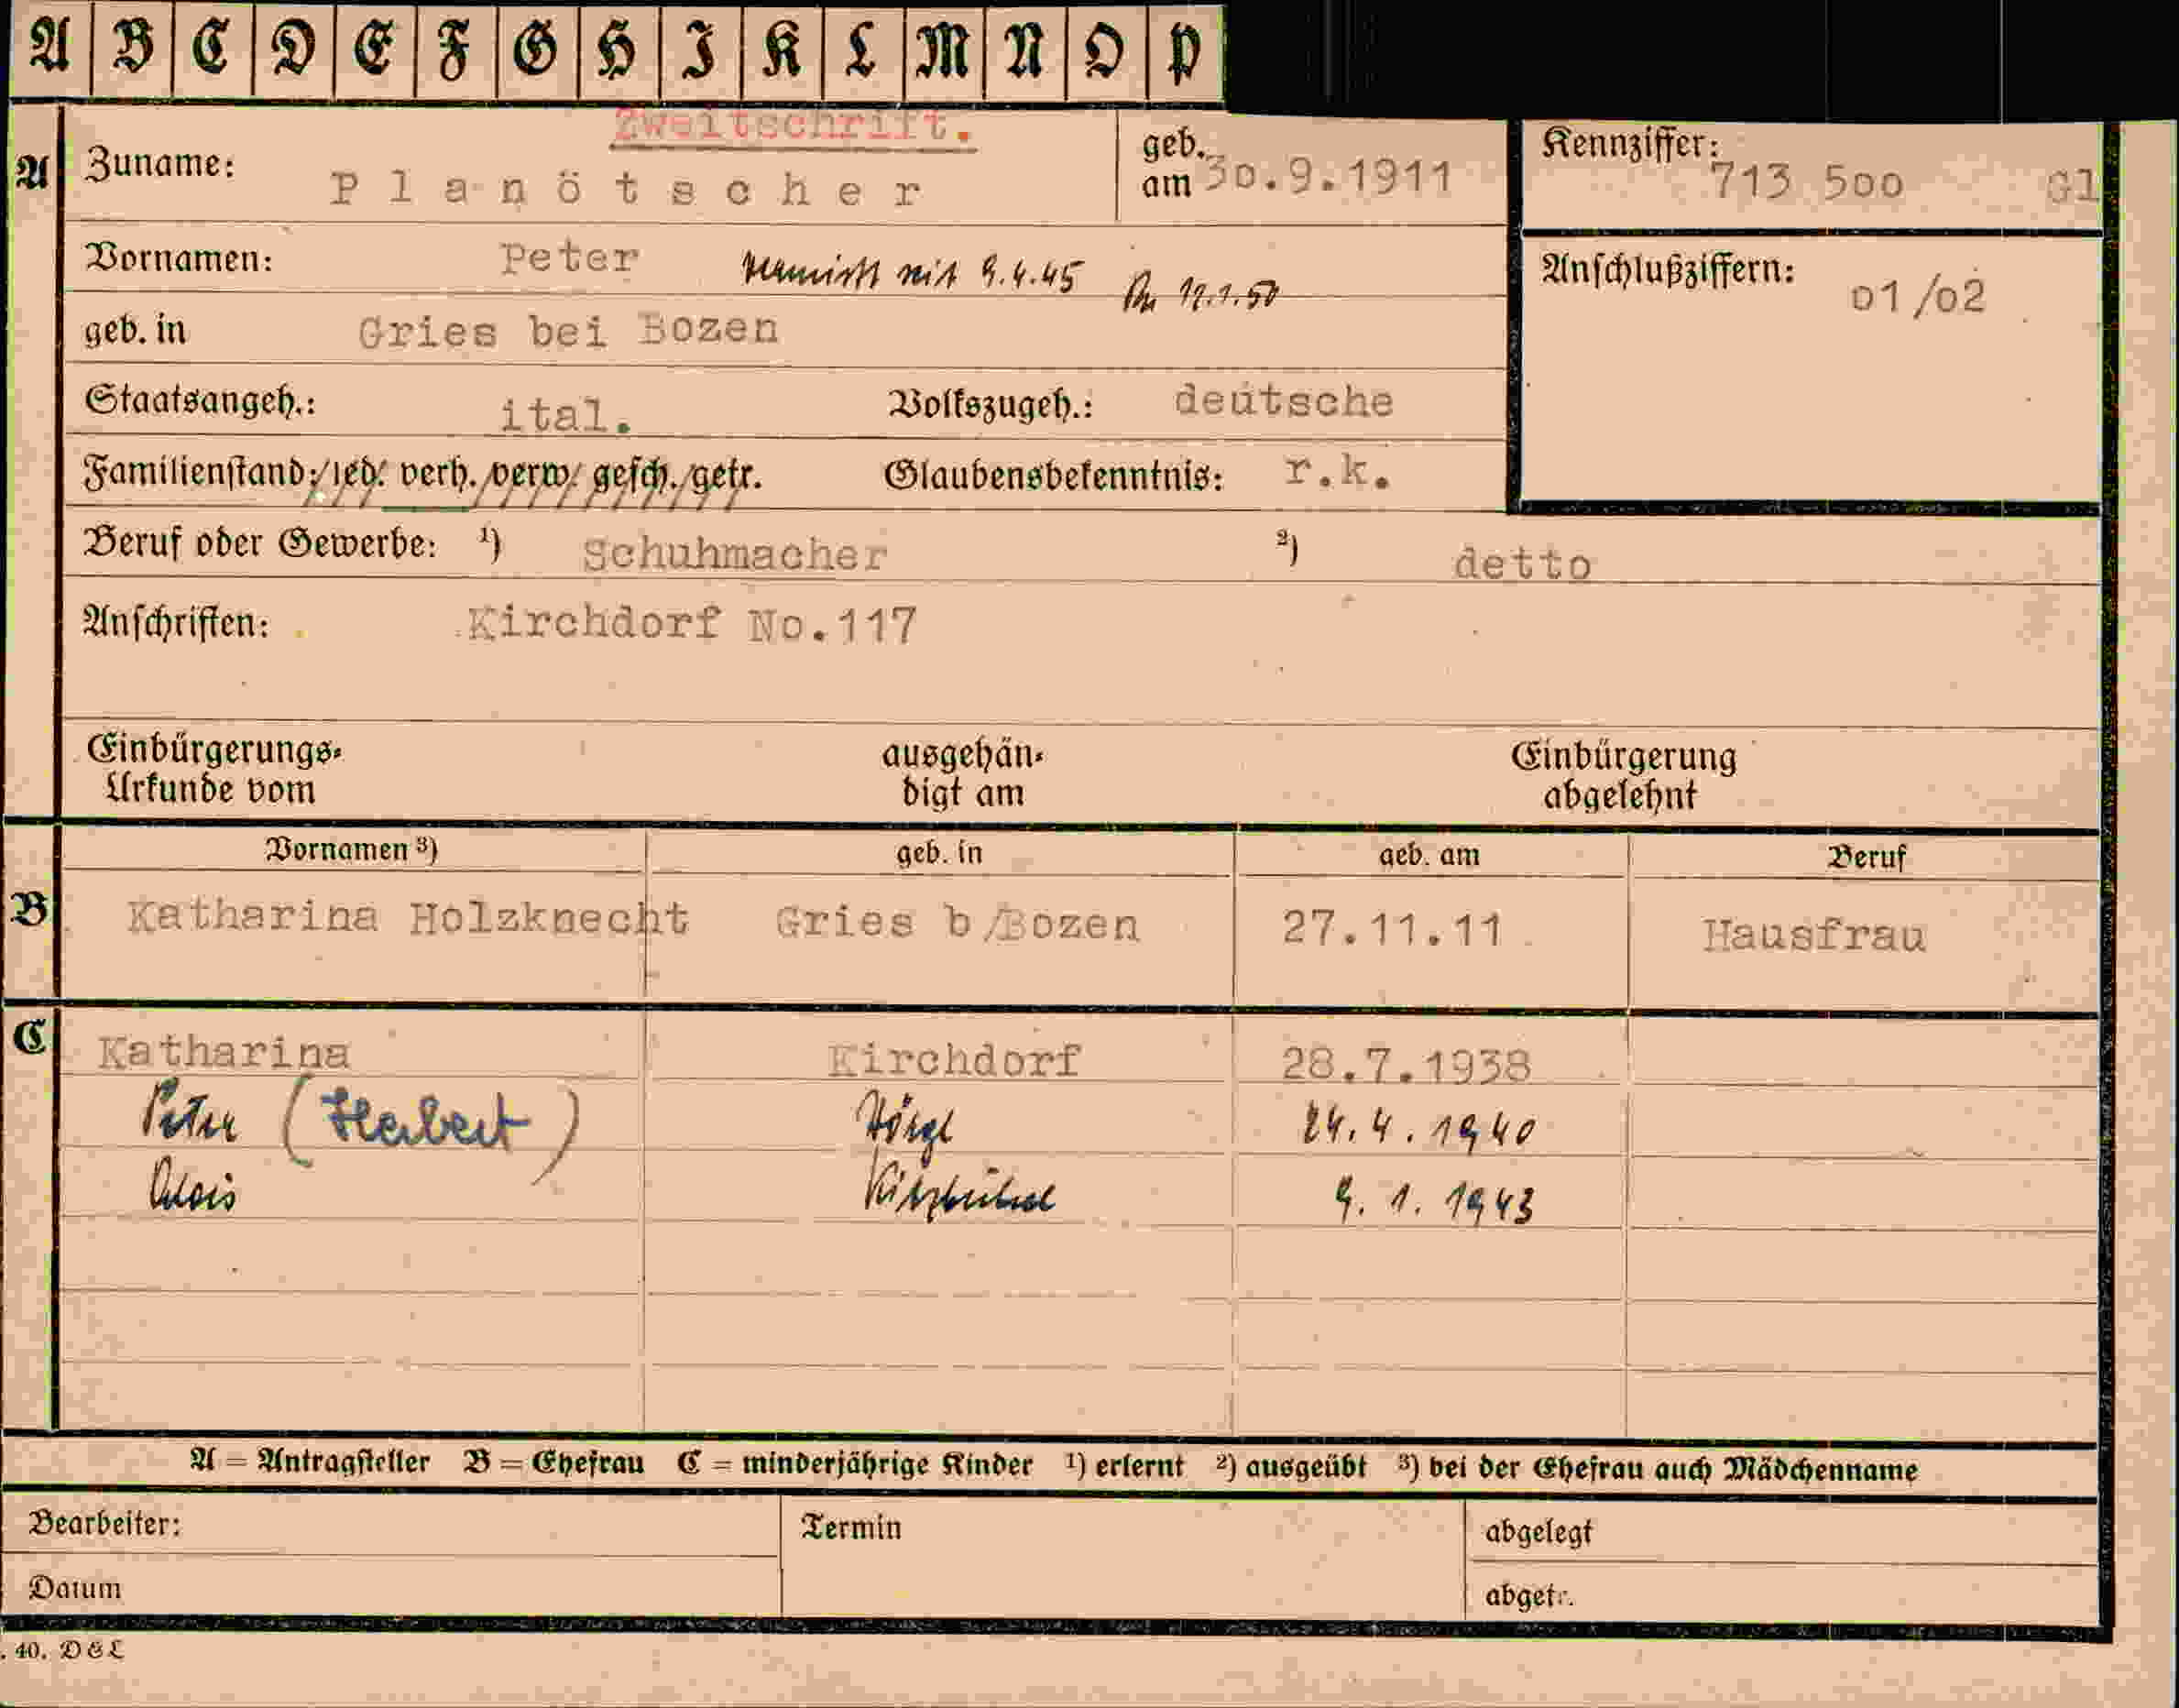 A B C D E F G H I K L M N O P
Zweitschrift.
A Zuname: Planötscher geb. am 30.9.1911 Kennziffer: 713 500 Gl
Vornamen: Peter vermisst seit 9.4.45 Anschlußziffern: 01/02
geb. in Gries bei Bozen
Staatsangeh.: ital. Volkszugeh.: deutsche
Familienstand: led. verh. verw. gesch. getr. Glaubensbekenntnis: r.k.
Beruf oder Gewerbe: 1) Schuhmacher 2) detto
Anschriften: Kirchdorf No.117
Einbürgerungs- ausgehän- Einbürgerung
Urkunde vom digt am abgelehnt
Vornamen 3) geb. in geb. am Beruf
B Katharina Holzknecht Gries b/Bozen 27.11.11 Hausfrau
C Katharina Kirchdorf 28.7.1938
Peter (Herbert) Wörgl 24.4.1940
Alois Kitzbühel 9.1.1943
A = Antragsteller B = Ehefrau C = minderjährige Kinder 1) erlernt 2) ausgeübt 3) bei der Ehefrau auch Mädchenname
Bearbeiter: Termin abgelegt
Datum abgetr.
. 40. DEL